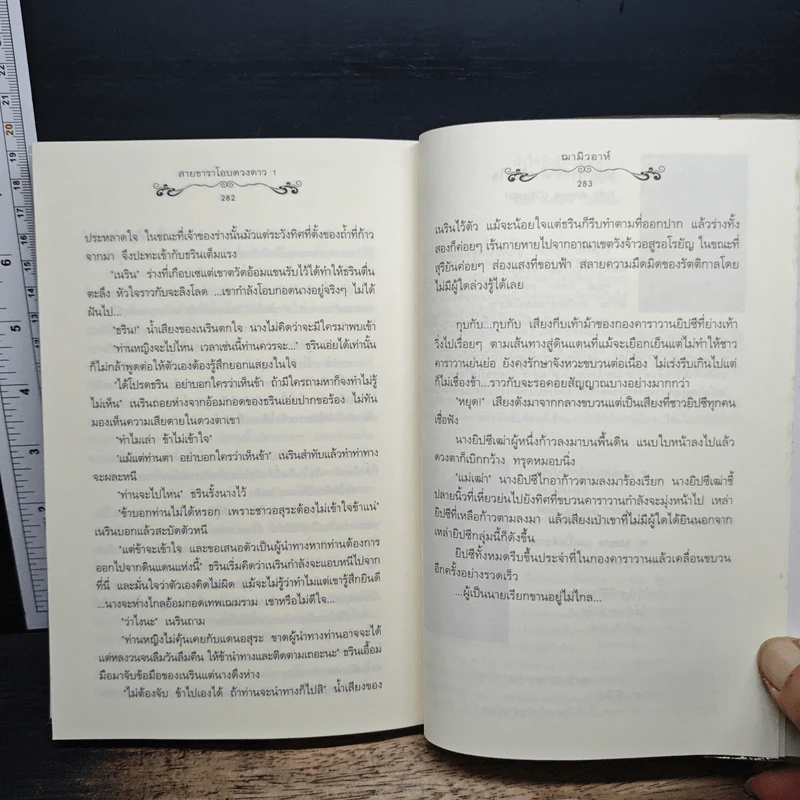 สายธาราโอบดวงดาว 1
282
ประหลาดใจ ในขณะที่เจ้าของร่างนั้นมัวแต่ระวังทิศที่ตั้งของถ้ำที่ก้าว
จากมา จึงปะทะเข้ากับธรินเต็มแรง
"เนริน" ร่างที่เกือบเซแต่เขาตวัดอ้อมแขนรับไว้ได้ทำให้ธรินตื่น
ตะลึง หัวใจราวกับจะลิงโลด ...เขากำลังโอบกอดนางอยู่จริงๆ ไม่ได้
ฝันไป...
"ธริน!" น้ำเสียงของเนรินตกใจ นางไม่คิดว่าจะมีใครมาพบเข้า
"ท่านหญิงจะไปไหน เวลาเช่นนี้ท่านควรจะ..." ธรินเอ่ยได้เท่านั้น
ก็ไม่กล้าพูดต่อให้ตัวเองต้องรู้สึกแอบแสยงในใจ
"ได้โปรดธริน อย่าบอกใครว่าเห็นข้า ถ้ามีใครถามหาก็จงทำไม่รู้
ไม่เห็น" เนรินถอยห่างจากอ้อมกอดของธรินเอ่ยปากขอร้อง ไม่ทัน
มองเห็นความเสียดายในดวงตาเขา
"ทำไมเล่า ข้าไม่เข้าใจ"
"แม้แต่ท่านตา อย่าบอกใครว่าเห็นข้า" เนรินสำทับแล้วทำท่าทาง
จะผละหนี
"ท่านจะไปไหน" ธรินรั้งนางไว้
"ข้าบอกท่านไม่ได้หรอก เพราะชาวอสุระต้องไม่เข้าใจข้าแน่"
เนรินบอกแล้วสะบัดตัวหนี
"แต่ข้าจะเข้าใจ และขอเสนอตัวเป็นผู้นำทางหากท่านต้องการ
ออกไปจากดินแดนแห่งนี้" ธรินเริ่มคิดว่าเนรินกำลังจะแอบหนีไปจาก
ที่นี่ และมั่นใจว่าตัวเองคิดไม่ผิด แม้จะไม่รู้ว่าทำไมแต่เขารู้สึกยินดี
...นางจะห่างไกลอ้อมกอดเทพเฌมราม เขาหรือไม่ดีใจ...
"ว่าไงนะ" เนรินถาม
"ท่านหญิงไม่คุ้นเคยกับแดนอสุระ ขาดผู้นำทางท่านอาจจะได้
แต่หลงวนจนลืมวันลืมคืน ให้ข้านำทางและติดตามเถอะนะ" ธรินเอื้อม
มือมาจับข้อมือของเนรินแต่นางดึงห่าง
"ไม่ต้องจับ ข้าไปเองได้ ถ้าท่านจะนำทางก็ไปสิ" น้ำเสียงของ
ฌามิวอาห์
283
เนรินไว้ตัว แม้จะน้อยใจแต่ธรินก็รีบทำตามที่ออกปาก แล้วร่างทั้ง
สองก็ค่อยๆ เร้นกายหายไปจากอาณาเขตวังจ้าวอสูรอโรยัญ ในขณะที่
สุริยันค่อยๆ ส่องแสงที่ขอบฟ้า สลายความมืดมิดของรัตติกาลโดย
ไม่มีผู้ใดล่วงรู้ได้เลย
กุบกับ...กุบกับ เสียงกีบเท้าม้าของกองคาราวานยิปซีที่ย่างเท้า
วิ่งไปเรื่อยๆ ตามเส้นทางสู่ดินแดนที่แม้จะเยือกเย็นแต่ไม่ทำให้ชาว
คาราวานย่นย่อ ยังคงรักษาจังหวะขบวนต่อเนื่อง ไม่เร่งรีบเกินไปแต่
ก็ไม่เชื่องช้า...ราวกับจะรอคอยสัญญาณบางอย่างมากกว่า
"หยุด!" เสียงดังมาจากกลางขบวนแต่เป็นเสียงที่ชาวยิปซีทุกคน
เชื่อฟัง
นางยิปซีเฒ่าผู้หนึ่งก้าวลงมาบนพื้นดิน แนบใบหน้าลงไปแล้ว
ดวงตาก็เบิกกว้าง ทรุดหมอบนิ่ง
"แม่เฒ่า" นางยิปซีไกอาก้าวตามลงมาร้องเรียก นางยิปซีเฒ่าชี้
ปลายนิ้วที่เหี่ยวย่นไปยังทิศที่ขบวนคาราวานกำลังจะมุ่งหน้าไป เหล่า
ยิปซีที่เหลือก้าวตามลงมา แล้วเสียงเป่าเขาที่ไม่มีผู้ใดได้ยินนอกจาก
เหล่ายิปซีกลุ่มนี้ก็ดังขึ้น
ยิปซีทั้งหมดรีบขึ้นประจำที่ในกองคาราวานแล้วเคลื่อนขบวน
อีกครั้งอย่างรวดเร็ว
...ผู้เป็นนายเรียกขานอยู่ไม่ไกล...